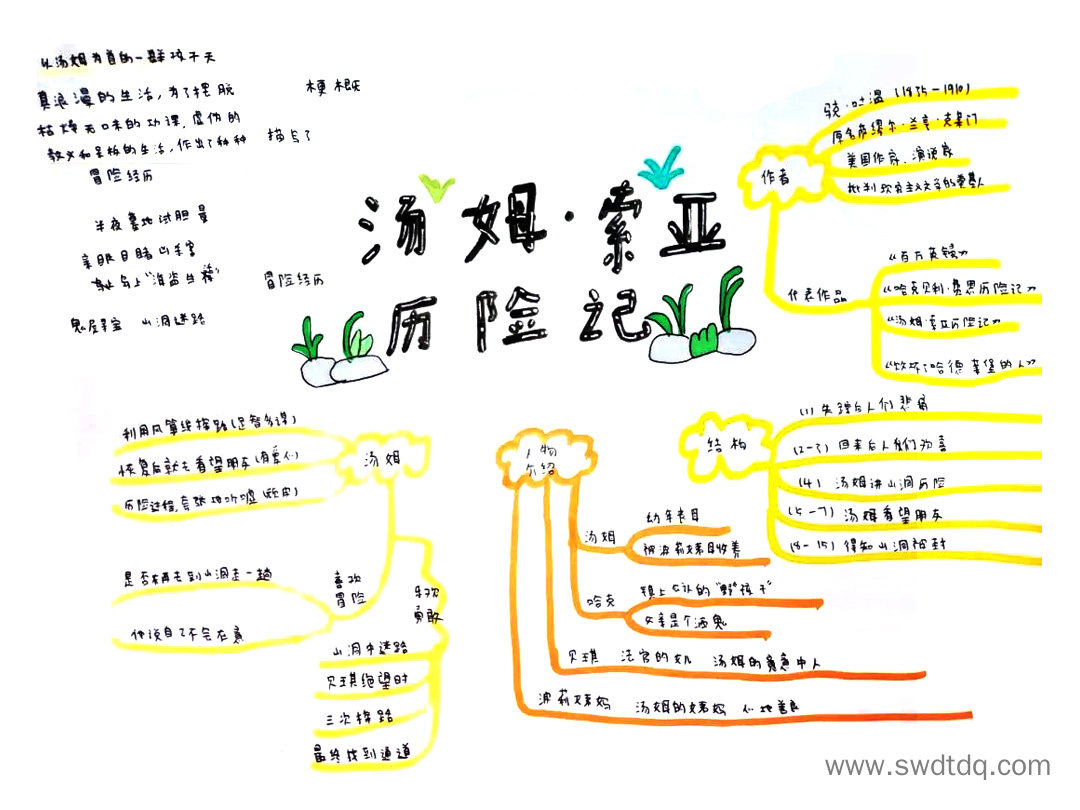 以汤姆为首的一群孩子天
真浪漫的生活,为了摆脱
梗概
枯燥无味的功课,虚伪的
教义和呆板的生活,作出了种种
描写了
冒险经历
半夜墓地试胆量
亲眼目睹凶手害
荒岛上“海盗生活”
冒险经历
鬼屋寻宝 山洞迷路
汤姆·索亚
历险记
作者
克·吐温 (1835-1910)
原名萨缪尔·兰亨·克莱门
美国作家、演说家
批判现实主义文学的奠基人
代表作品
《百万英镑》
《哈克贝利·费恩历险记》
《汤姆·索亚历险记》
《败坏了哈德莱堡的人》
结构
(1) 失踪后人们悲痛
(2-3) 回来后人们为喜
(4) 汤姆讲山洞历险
(5-7) 汤姆看望朋友
(8-15) 得知山洞被封
人物
介绍
汤姆
幼年丧母
被波莉姨母收养
哈克
镇上公认的“野孩子”
父亲是个酒鬼
贝琪 法官的女儿 汤姆的意中人
波莉姨妈 汤姆的姨妈 心地善良
汤姆
利用风筝线探路(足智多谋)
恢复后就去看望朋友(有爱心)
历险过程,夸张地吹嘘
喜欢
冒险
是否再去到山洞走一趟
他说自己不会在意
勇敢
山洞中迷路
贝琪绝望时
三次探路
最终找到通道
www.swdtdq.com